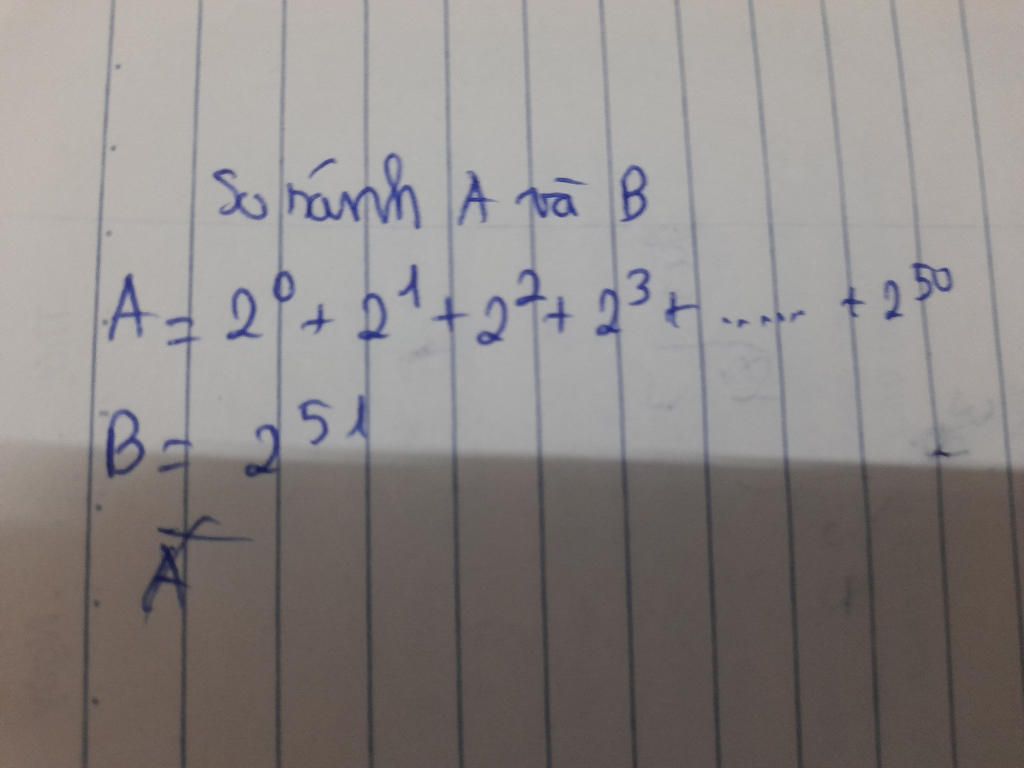 So sánh A và B
A = 2⁰ + 2¹ + 2² + 2³ + ..... + 2⁵⁰
B = 2⁵¹
A